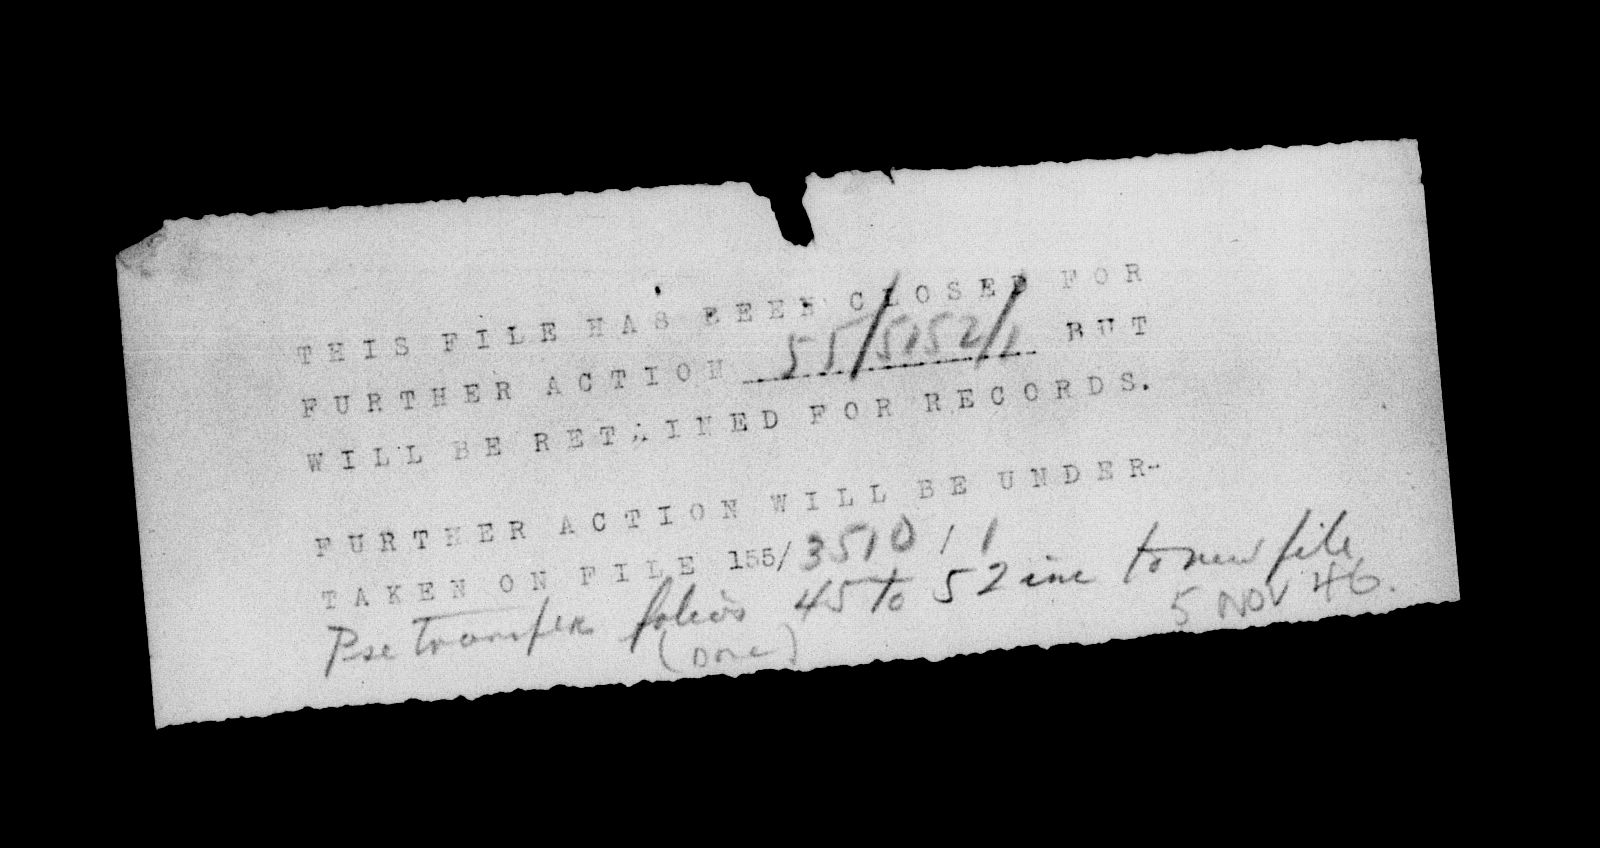 THIS FILE HAS BEEN CLOSED FOR
FURTHER ACTION 55/5152/1 BUT
WILL BE RETAINED FOR RECORDS.
FURTHER ACTION WILL BE UNDER-
TAKEN ON FILE 155/3510/1
Pse transfer folios 45 to 52 inc to new file
(Done) 5 NOV 46.